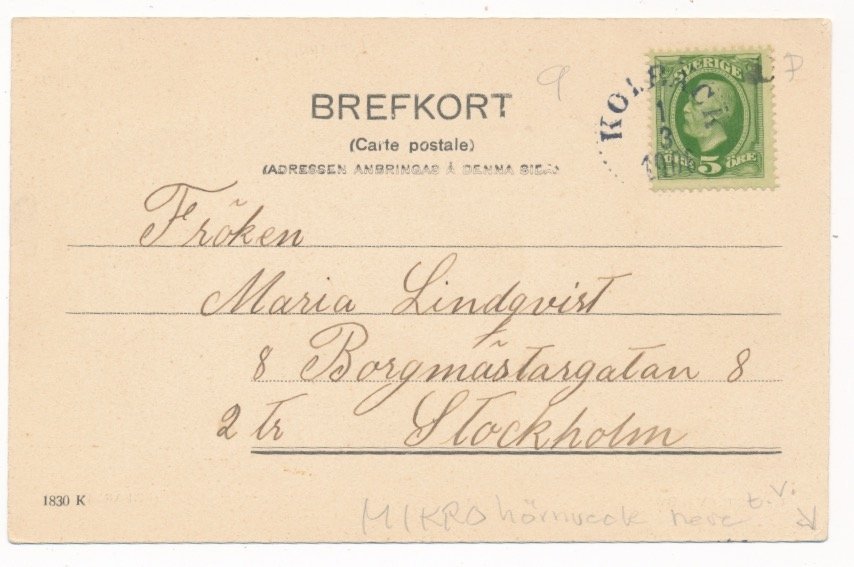 9
P
SVERIGE
KOLBÄCK
1
3
5 ÖRE
BREFKORT
(Carte postale)
(ADRESSEN ANBRINGAS Å DENNA SIDA)
Fröken
Maria Lindqvist
8 Borgmästargatan 8
2 tr Stockholm
1830 K
MIKRO hörnveck nere t.v.